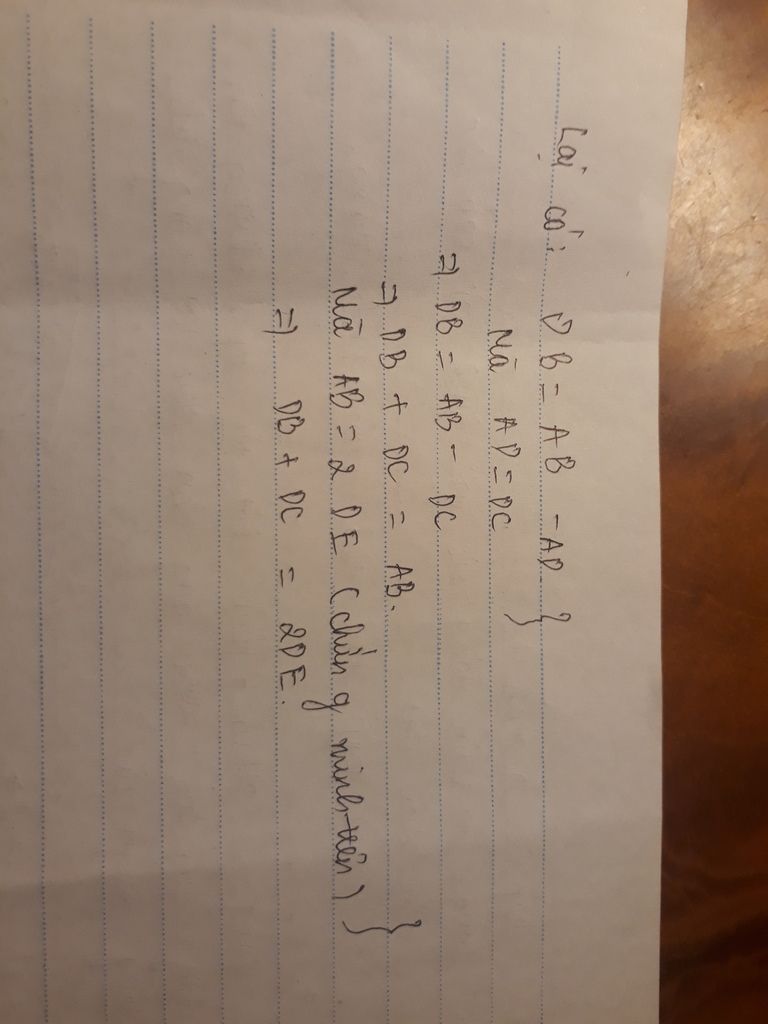 Lại có: DB = AB - AD }
Mà AD = DC }
=> DB = AB - DC
=> DB + DC = AB. }
Mà AB = 2 DE (chứng minh trên) }
=> DB + DC = 2DE.